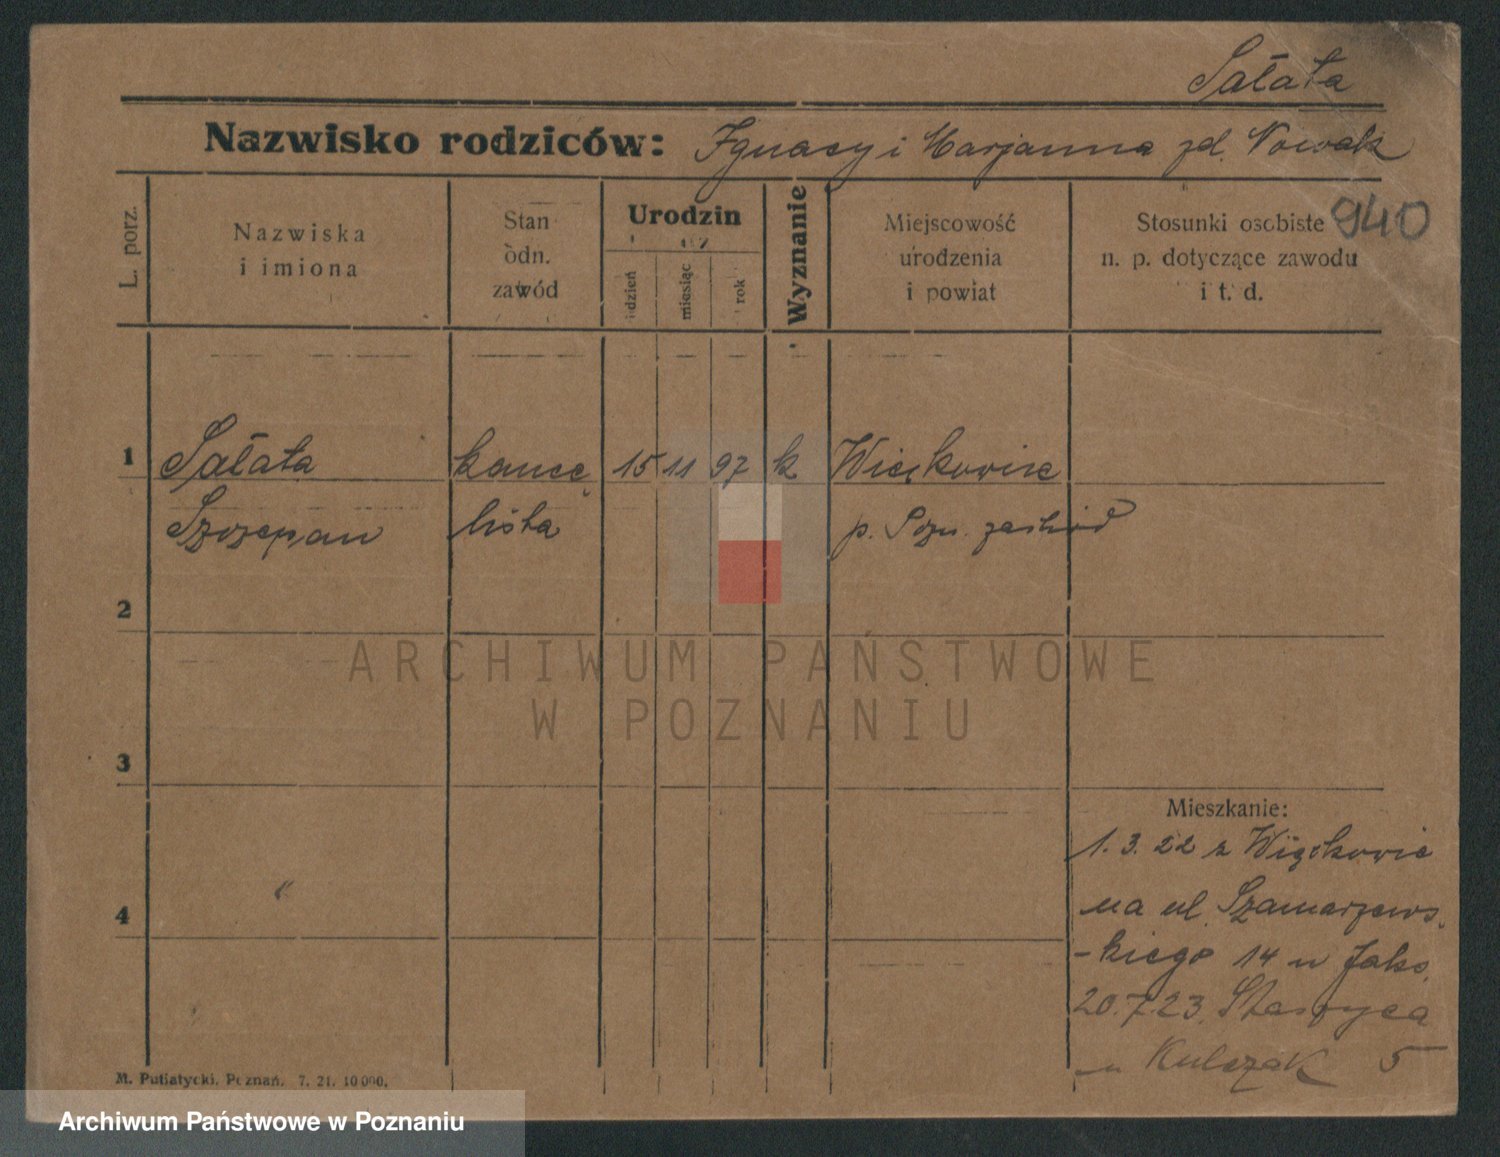 Sałata
Nazwisko rodziców: Ignacy i Marjanna zd. Nowak
940
L. porz.
Nazwiska
i imiona
Stan
odn.
zawód
Urodzin
dzień
miesiąc
rok
Wyznanie
Miejscowość
urodzenia
i powiat
Stosunki osobiste
n. p. dotyczące zawodu
i t. d.
1 Sałata kance 15 11 97 k Więckowice
Szczepan lista p. Pozn. zachód
2
3
4
ARCHIWUM PAŃSTWOWE
W POZNANIU
Mieszkanie:
1.3.22 z Więckowic
na ul. Szamarzews
-kiego 14 u
20.7.23. Staszyca
u Kulczak 5
M. Putiatycki. Poznań. 7. 21. 10 000.
Archiwum Państwowe w Poznaniu